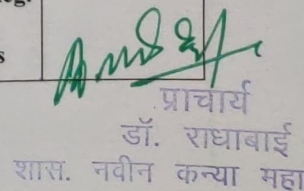 s
प्राचार्य
डॉ. राधाबाई
शास. नवीन कन्या महा